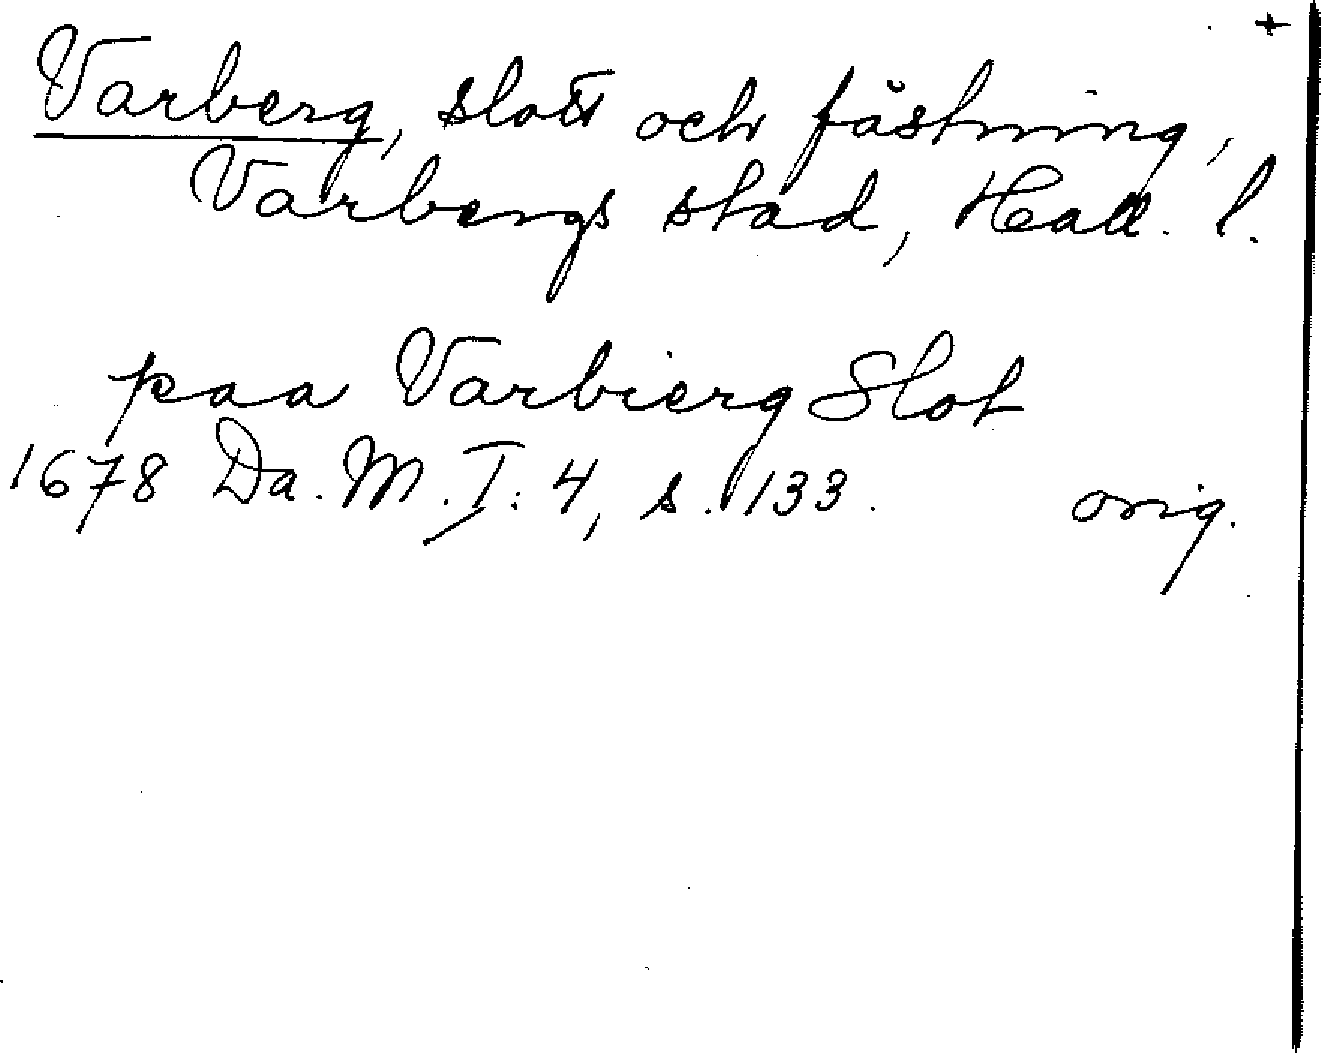 +
Varberg, slott och fästning,
Varbergs stad, Hall. l.
paa Varbierg Slot
1678 Da. M. I: 4, s. 133. orig.